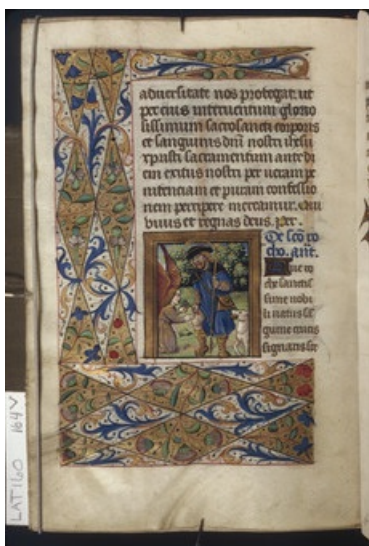 aduersitate nos protegat. ut
per eius interuentum glorio
sissimum sacrosancti corporis
et sanguinis dñi nostri ihesu
xpristi sacramentum ante di
em exitus nostri per ueram pe
nitenciam et puram confessio
nem percipere mereamur. Qui
viuis et regnas deus. per.
De scõ ro
cho. añt.
Aue ro
che sanctis
sime nobi
li natus sã
guine crucis
signaris
LAT160 164V